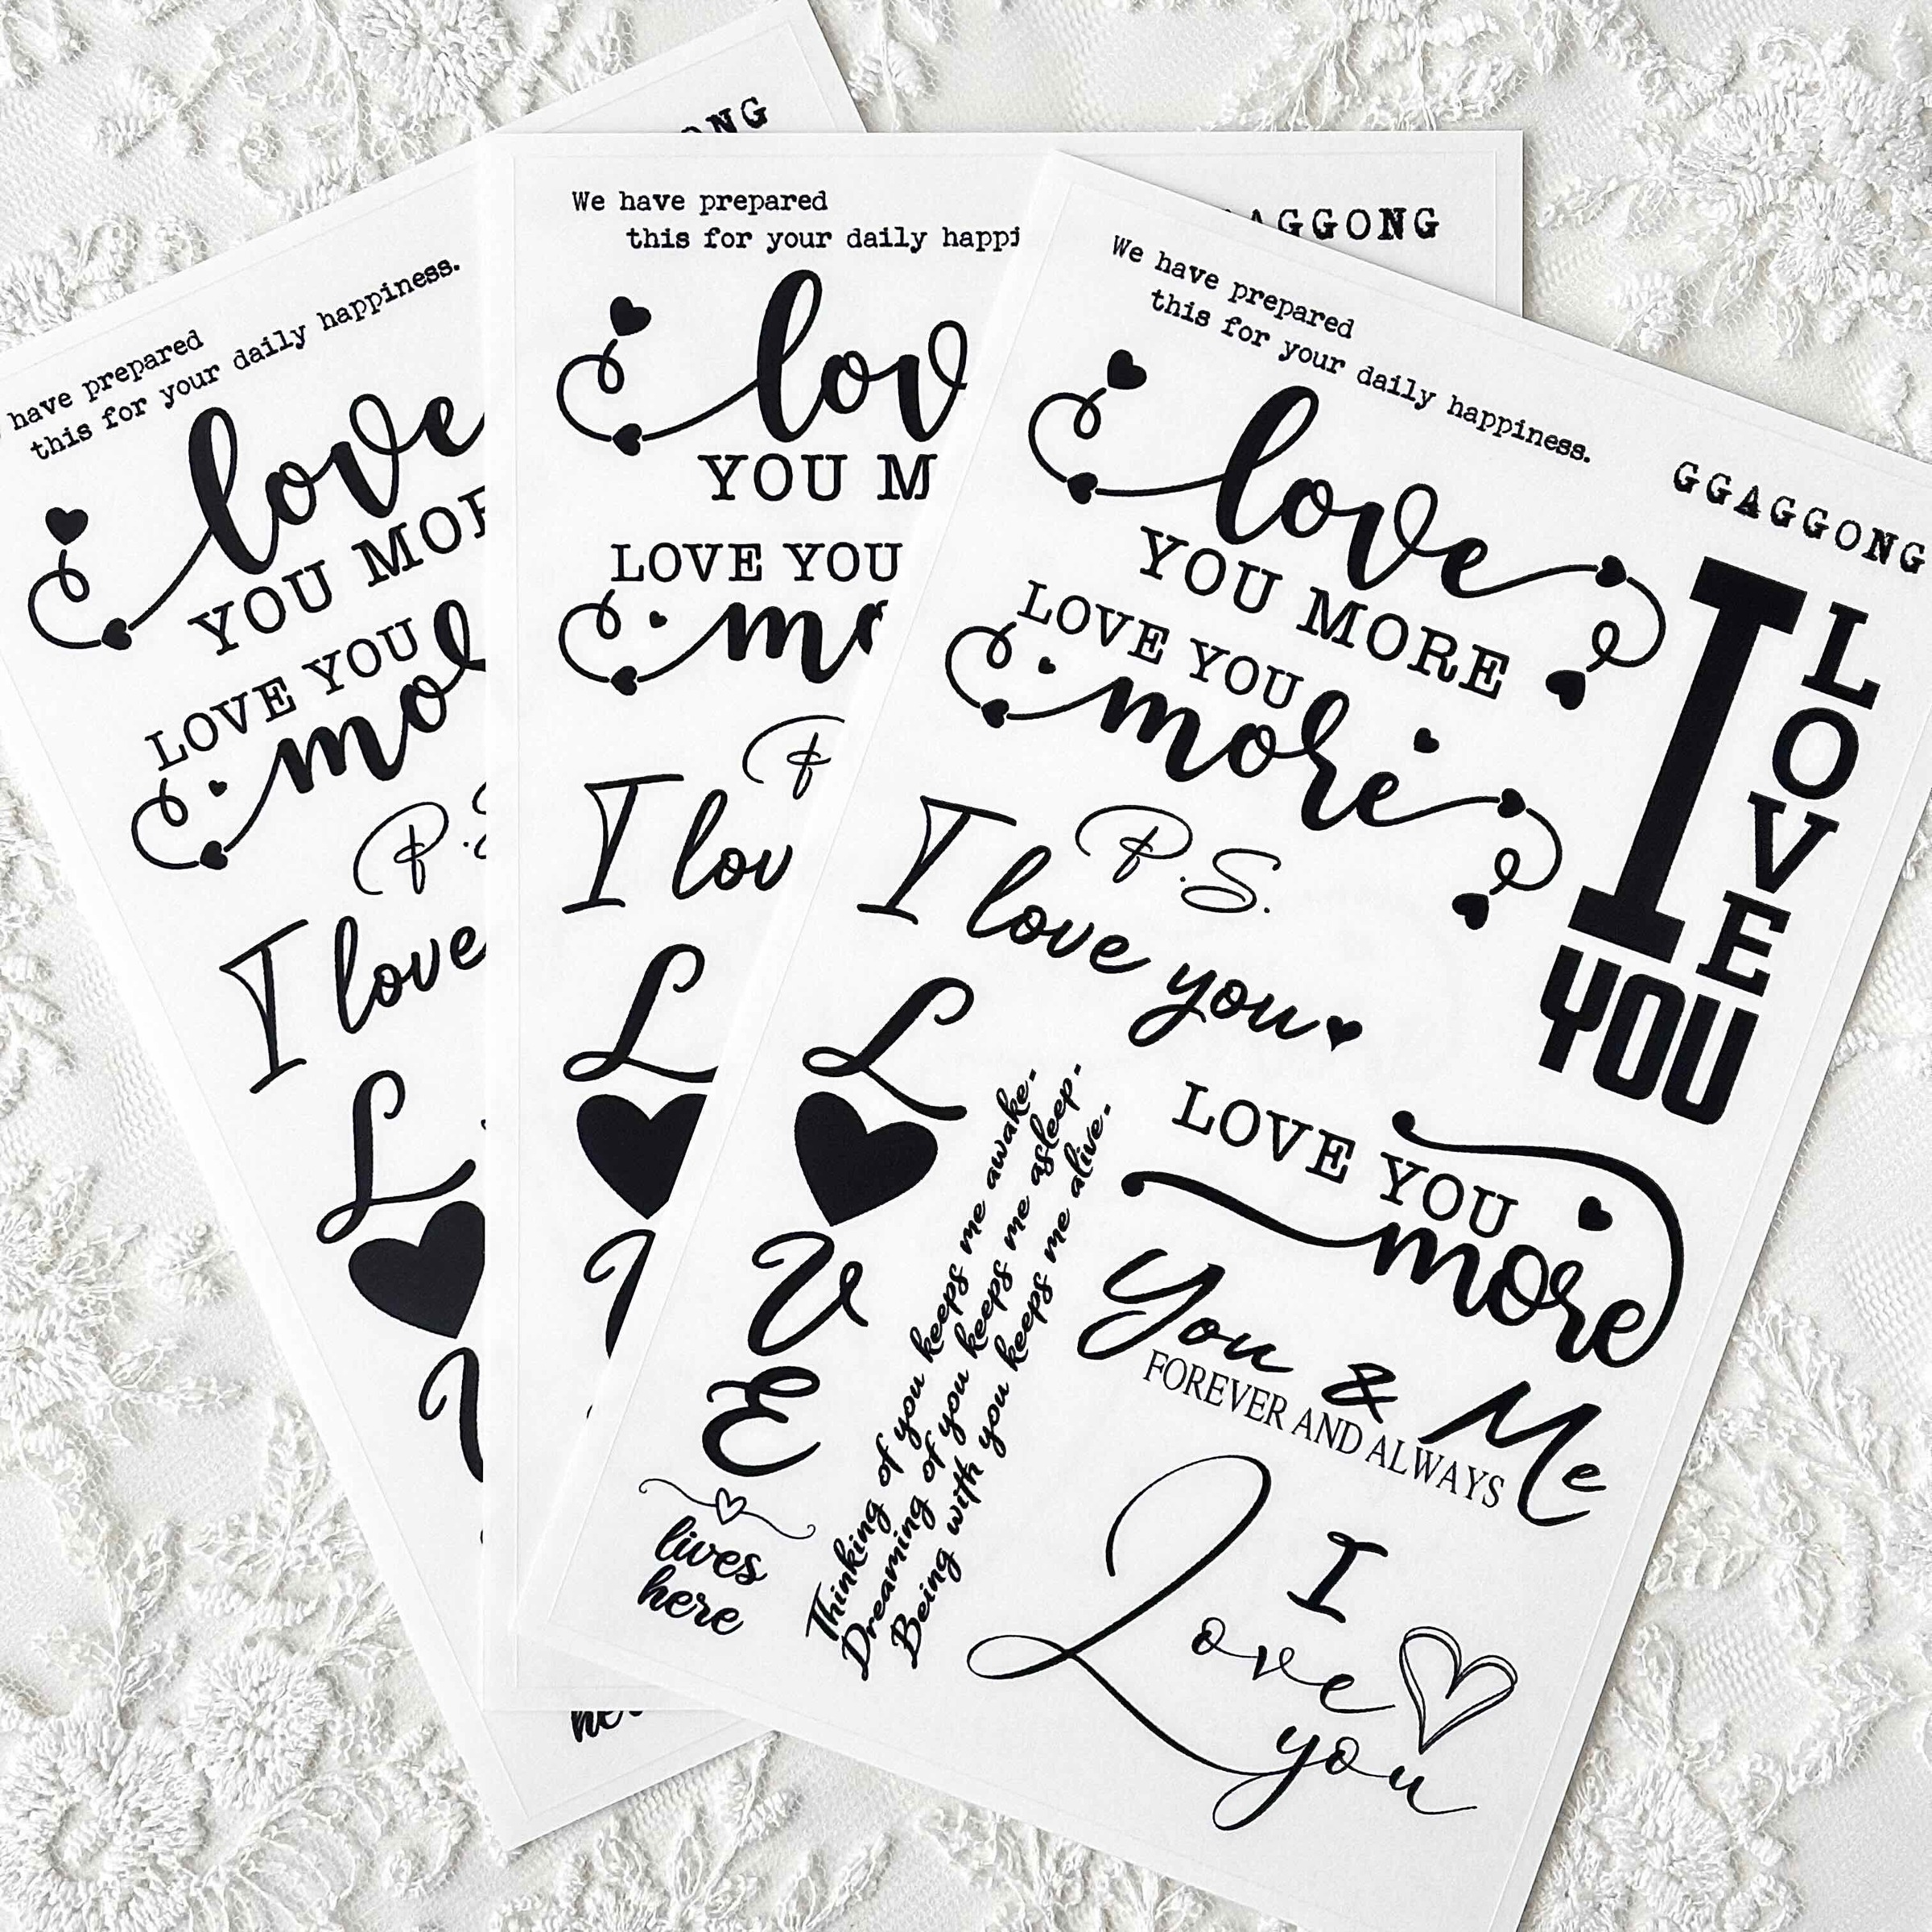 have prepared
this for your daily happiness.
love
YOU MOR
LOVE YOU
mor
P.S
I love
L
V
here
ONG
We have prepared
this for your daily happi
GGAGGONG
lov
YOU M
LOVE YOU
mo
P
I lov
L
We have prepared
this for your daily happiness.
GGAGGONG
love
YOU MORE
LOVE YOU
more
I
LOVE
YOU
P.S.
I love you
L
V
E
lives
here
Thinking of you keeps me awake.
Dreaming of you keeps me asleep.
Being with you keeps me alive.
LOVE YOU
more
You & Me
FOREVER AND ALWAYS
I
Love
you